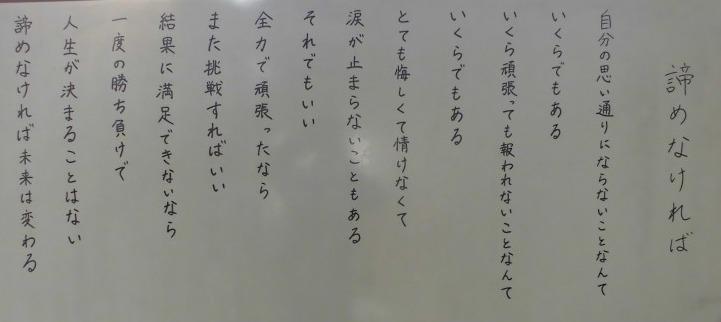 諦めなければ
自分の思い通りにならないことなんて
いくらでもある
いくら頑張っても報われないことなんて
いくらでもある
とても悔しくて情けなくて
涙が止まらないこともある
それでもいい
全力で頑張ったなら
また挑戦すればいい
結果に満足できないなら
一度の勝ち負けで
人生が決まることはない
諦めなければ未来は変わる